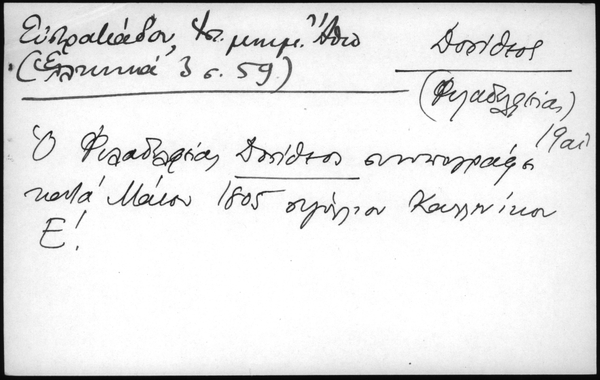 Εὐστρατιάδου, Ἱστ. μνημ. Ἄθω
(Ἑλληνικά 3 σ. 59)
Δοσίθεος
(Φιλαδελφείας)
19 αἰ
Ὁ Φιλαδελφείας Δοσίθεος συνυπογράφει
κατά Μάϊον 1805 σιγίλλιον Καλλινίκου
Ε!